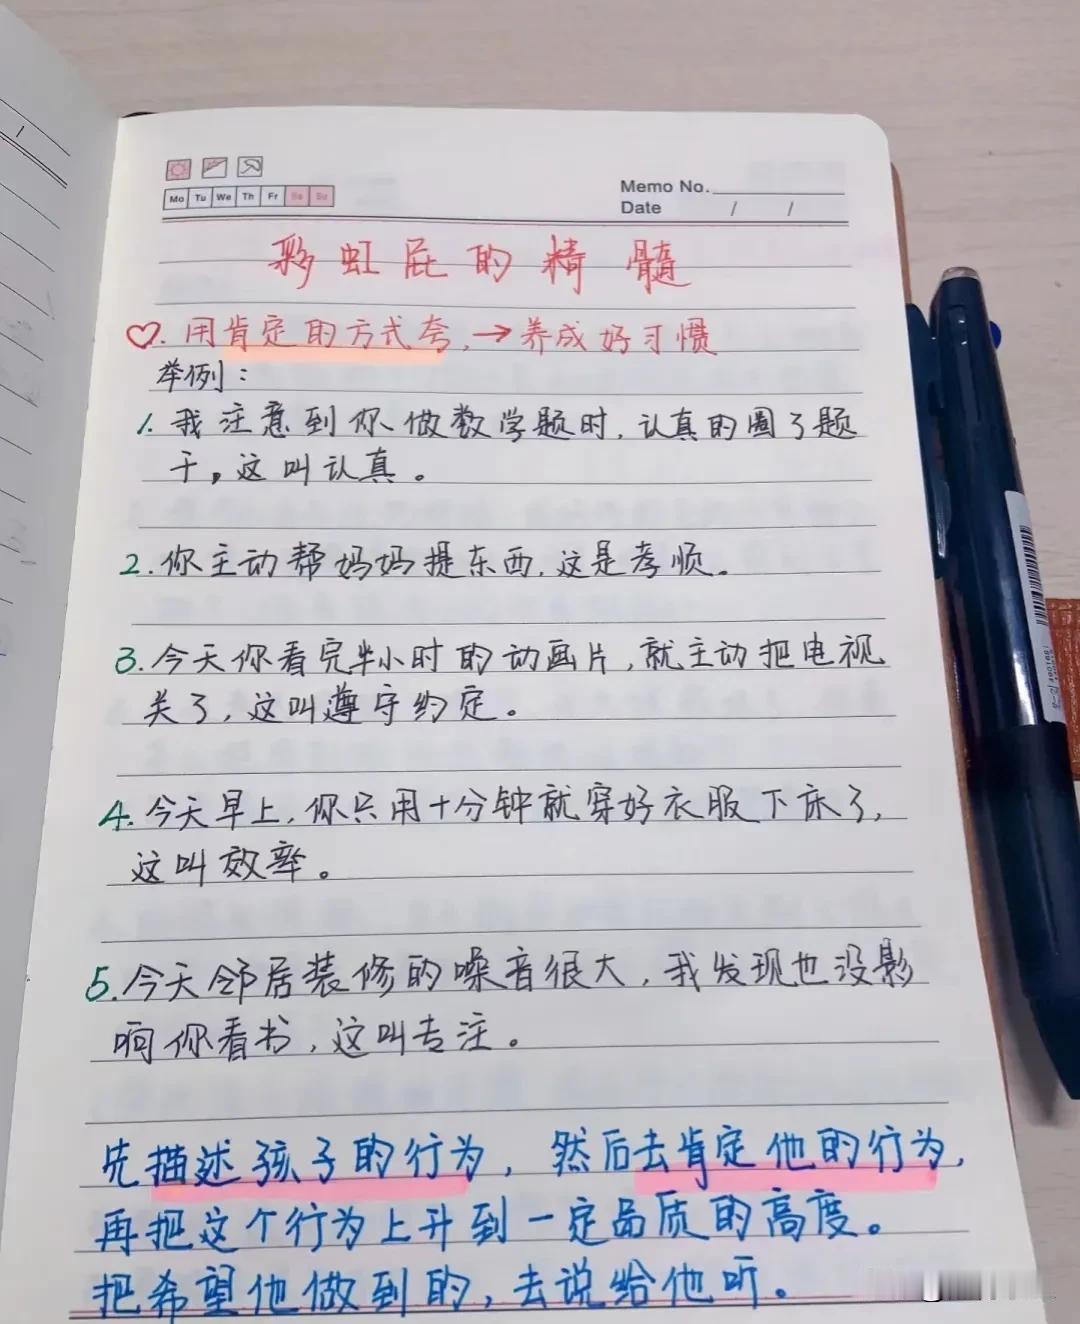 Mo Tu We Th Fr Sa Su
Memo No.
Date / /
彩虹屁的精髓
♡. 用肯定的方式夸,→养成好习惯
举例:
1. 我注意到你做数学题时,认真的圈了题
干,这叫认真。
2. 你主动帮妈妈提东西,这是孝顺。
3. 今天你看完半小时的动画片,就主动把电视
关了,这叫遵守约定。
4. 今天早上,你只用十分钟就穿好衣服下床了,
这叫效率。
5. 今天邻居装修的噪音很大,我发现也没影
响你看书,这叫专注。
先描述孩子的行为,然后去肯定他的行为,
再把这个行为上升到一定品质的高度。
把希望他做到的,去说给他听。